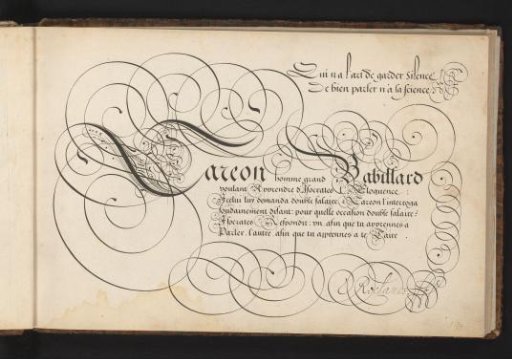 Qui n'a l'art de garder silence
De bien parler n'a la science
Careon homme grand Babillard
voulant Apprendre d'Isocrates L'Eloquence:
Icelui luy demanda double salaire, Careon l'interroga
soudainement disant: pour quelle occasion double salaire?
Isocrates Respondit: un afin que tu apprennes a
Parler, l'autre afin que tu apprennes a te Taire.